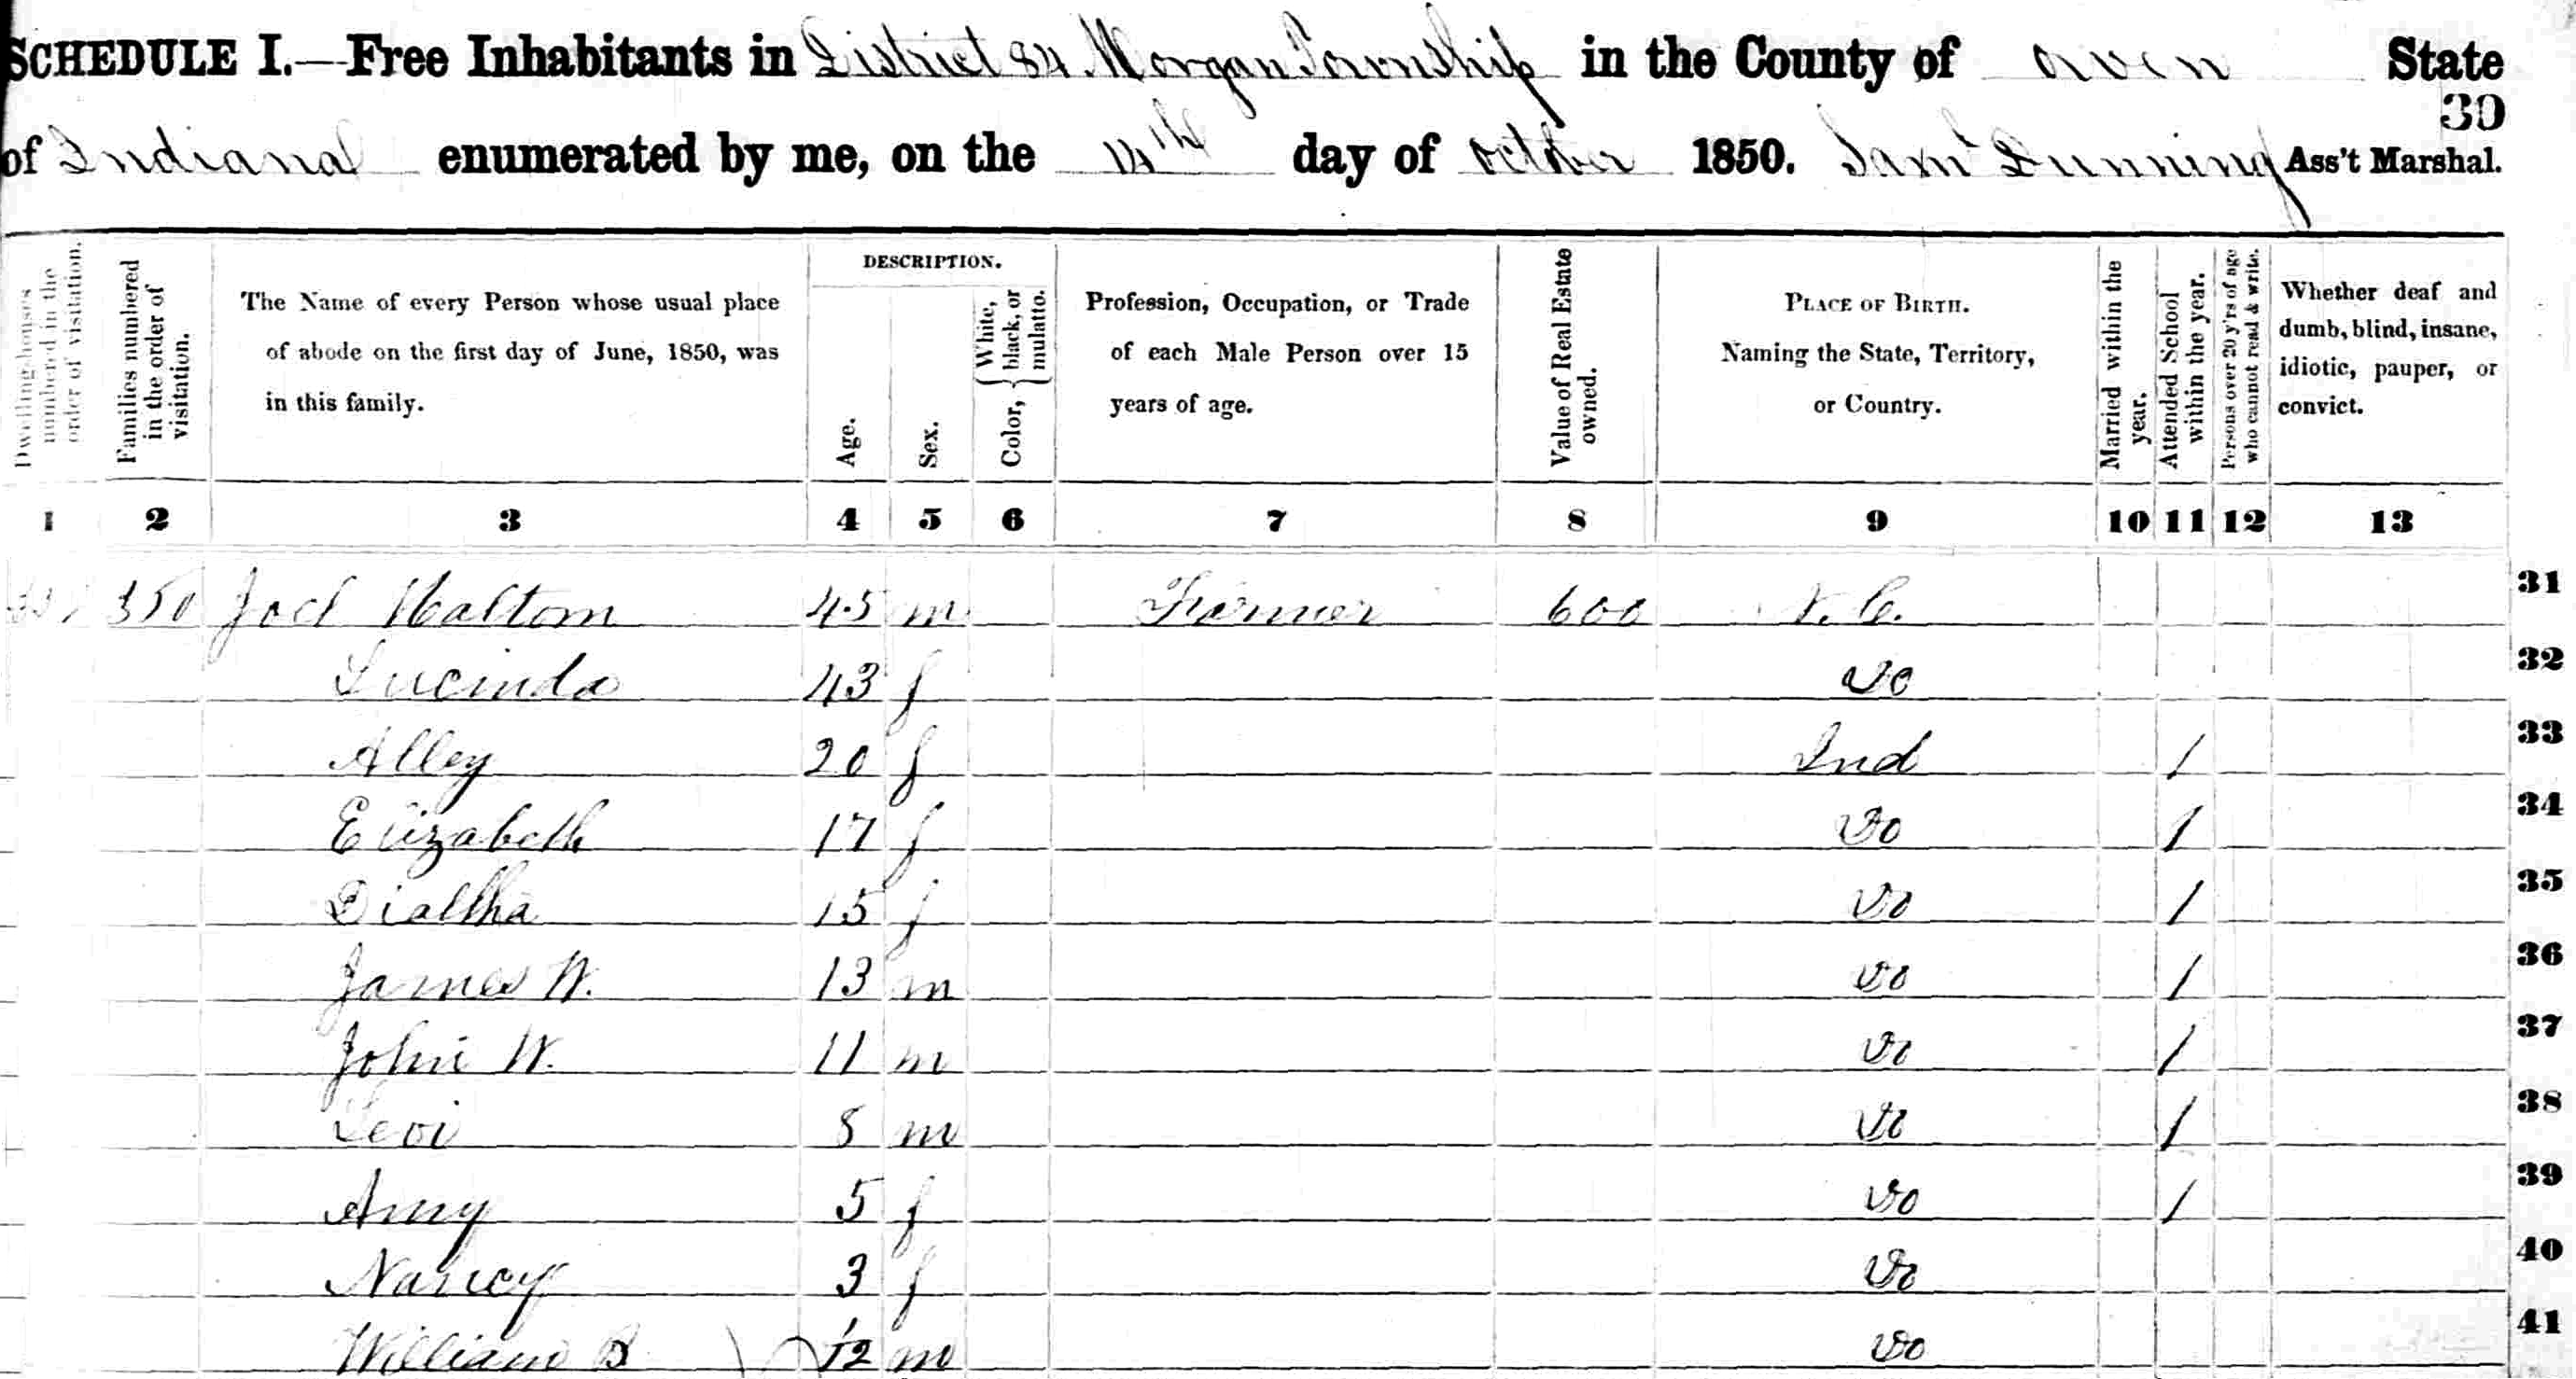 SCHEDULE I.—Free Inhabitants in District 84 Morgan Township in the County of Owen State
39
of Indiana enumerated by me, on the 14th day of October 1850. Saml Dunning Ass't Marshal.
Dwelling-houses numbered in the order of visitation.
Families numbered in the order of visitation.
The Name of every Person whose usual place of abode on the first day of June, 1850, was in this family.
DESCRIPTION.
Age.
Sex.
Color, { White, black, or mulatto.
Profession, Occupation, or Trade of each Male Person over 15 years of age.
Value of Real Estate owned.
PLACE OF BIRTH. Naming the State, Territory, or Country.
Married within the year.
Attended School within the year.
Persons over 20 y'rs of age who cannot read & write.
Whether deaf and dumb, blind, insane, idiotic, pauper, or convict.
1 2 3 4 5 6 7 8 9 10 11 12 13
350 Joel Haltom 45 m Farmer 600 N. C. 31
Lucinda 43 f Do 32
Alley 20 f Ind 1 33
Elizabeth 17 f Do 1 34
Dialtha 15 f Do 1 35
James W. 13 m Do 1 36
John W. 11 m Do 1 37
Levi 8 m Do 1 38
Amy 5 f Do 1 39
Nancy 3 f Do 40
William B 1/12 m Do 41